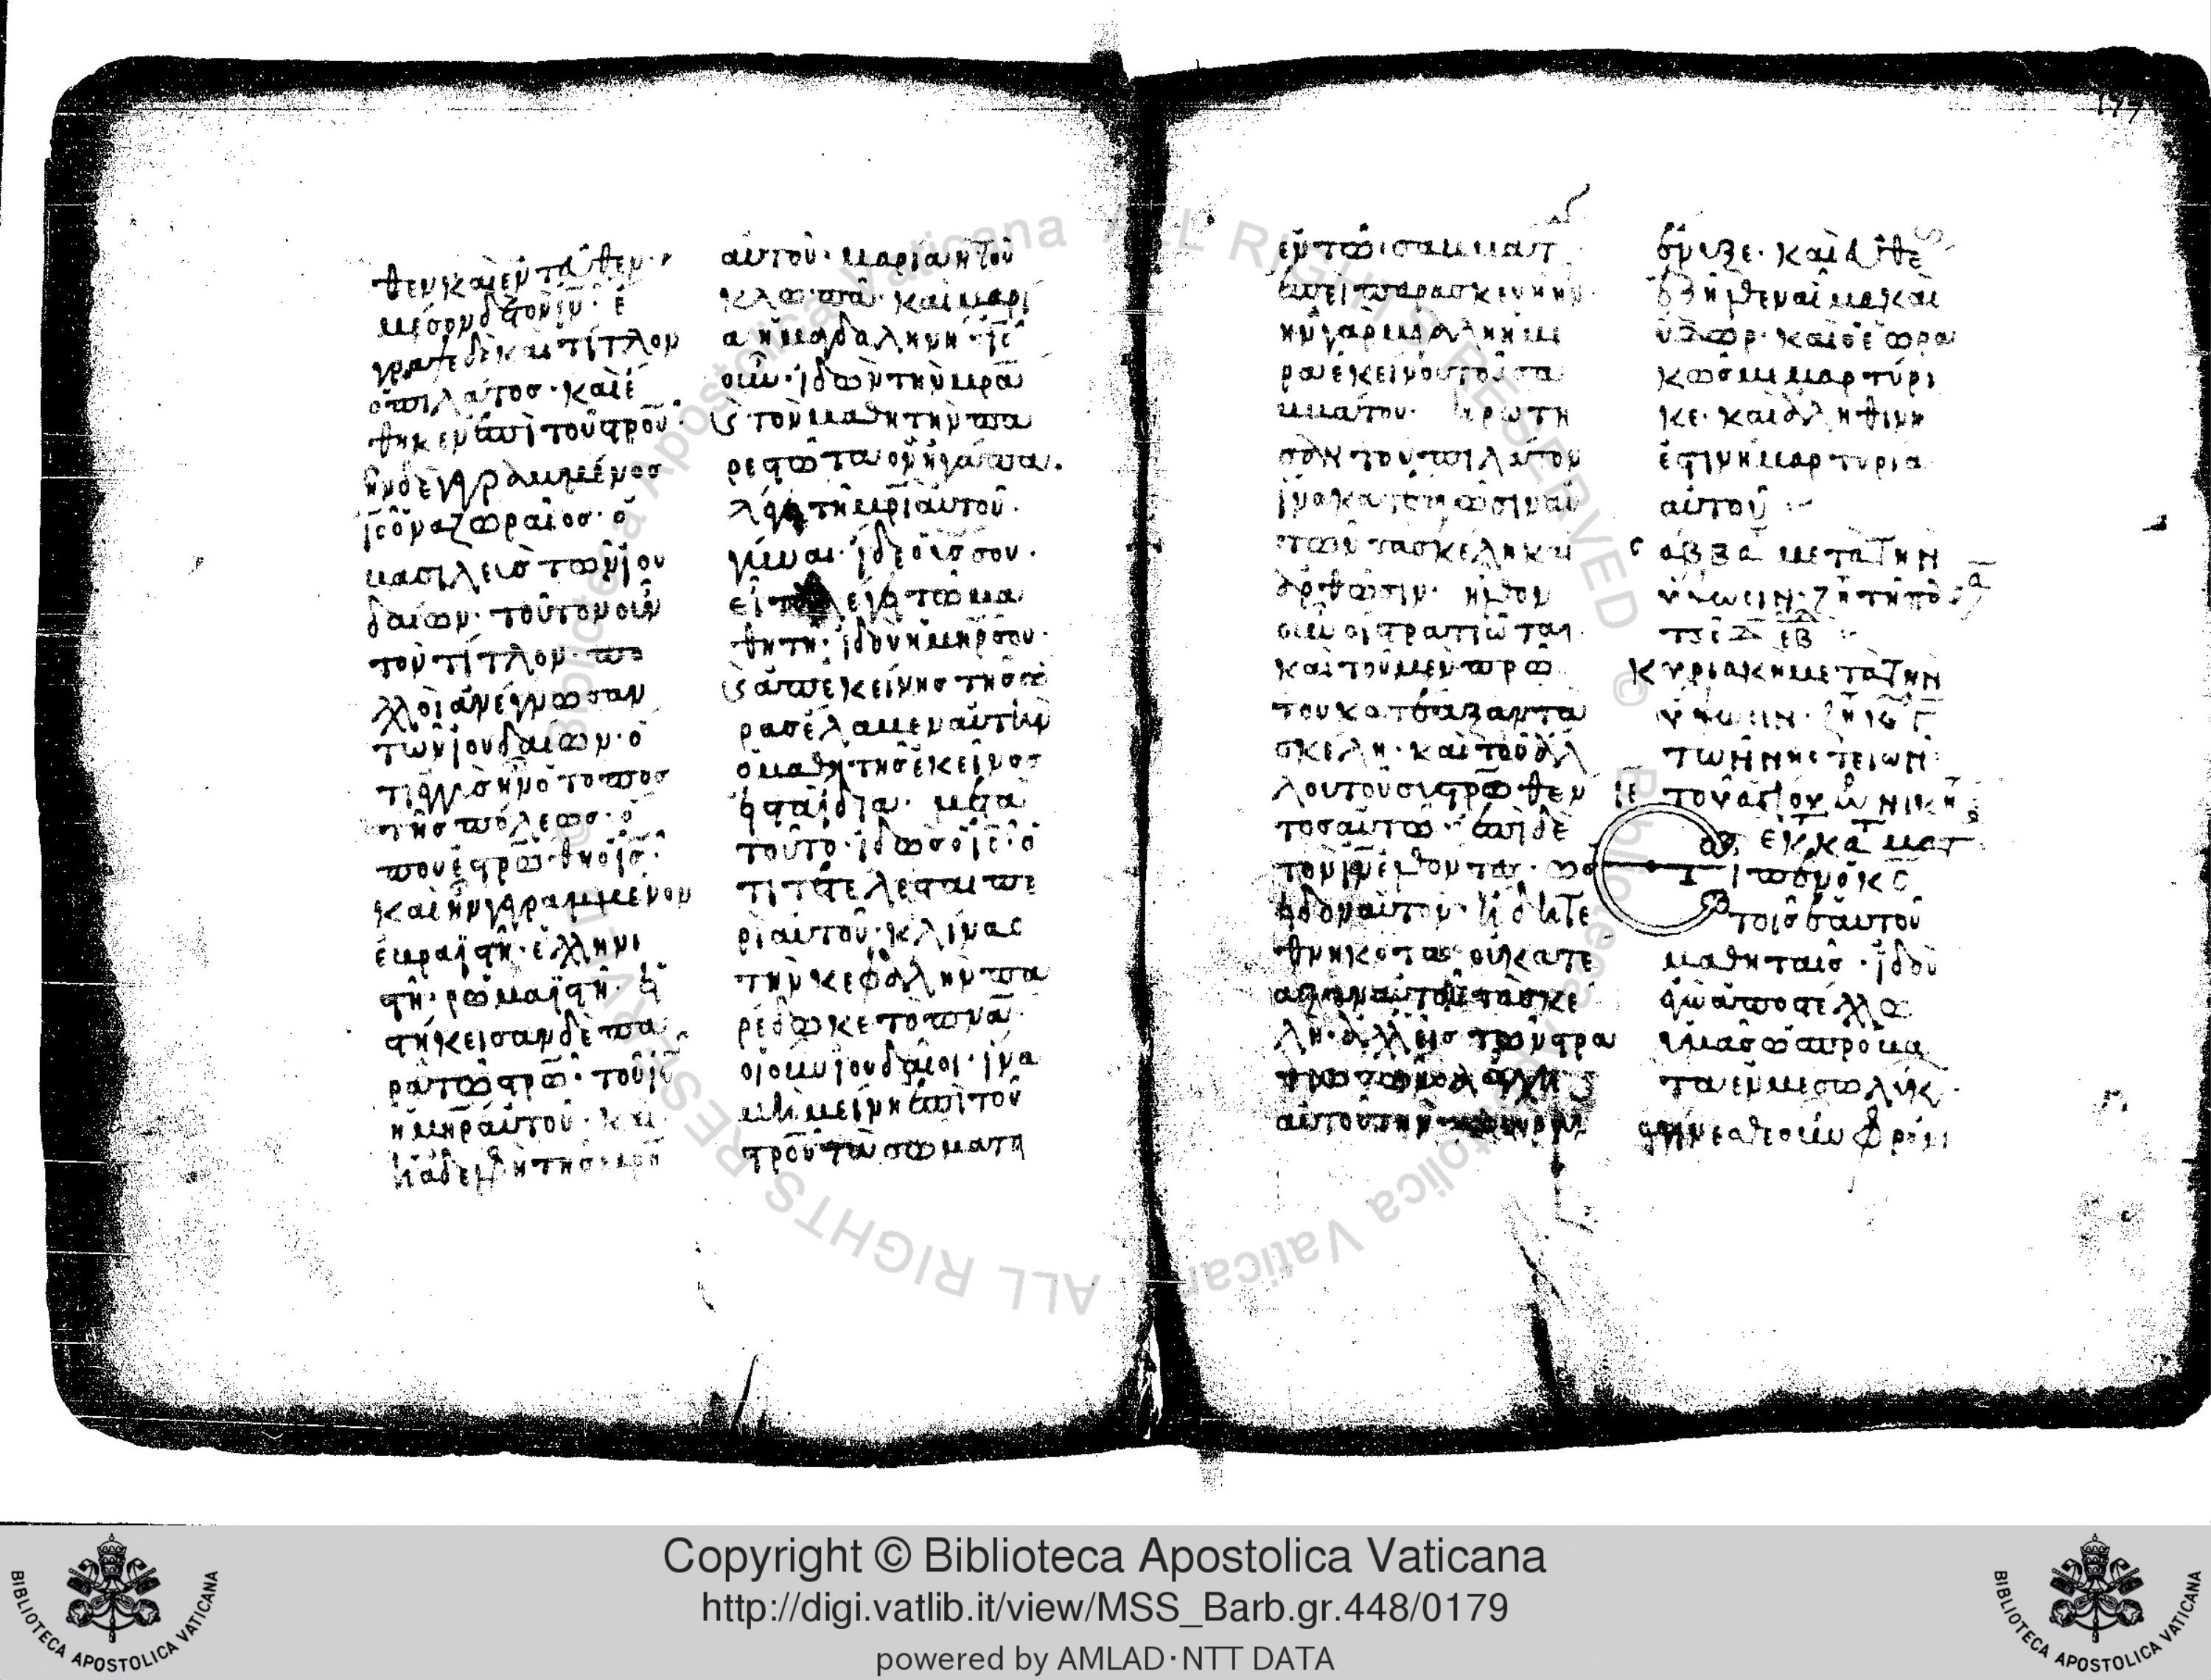 θεν καὶ ἐντεῦθεν·
μέσον δὲ τὸν ιν· ἔ
γραψε δὲ καὶ τίτλον
ὁ πιλάτος· καὶ ἔ
θηκεν ἐπὶ τοῦ στρου·
ἦν δὲ γεγραμμένος
ις ὁ ναζωραῖος· ὁ
βασιλεὺς τῶν ἰου
δαίων· τοῦτον οὖν
τὸν τίτλον· πο
λλοὶ ἀνέγνωσαν
τῶν ἰουδαίων· ὅ
τι ἐγγὺς ἦν ὁ τόπος
τῆς πόλεως· ὅ
που ἐστρώθη ὁ ις·
καὶ ἦν γεγραμμένον
ἑβραϊστὴ· ἑλληνι
στὴ· ρωμαϊστὴ· εἱ
στήκεισαν δὲ πα
ρὰ τῶ στρω· τοῦ ιυ
ἡ μηρ αὐτοῦ· καὶ
ἡ ἀδελφὴ τῆς μρς
αὐτοῦ· μαρία ἡ τοῦ
κλωπᾶ· καὶ μαρί
α ἡ μαγδαληνὴ· ις
οὖν· ἰδὼν τὴν μρα
καὶ τὸν μαθητὴν πα
ρεστῶτα ὃν ἠγάπα·
λέγει τῆ μρι αὐτοῦ·
γύναι· ἴδε ὁ υς σου·
εἶτα λέγει τῶ μα
θητῆ· ἰδοὺ ἡ μηρ σου·
καὶ ἀπ' ἐκείνης τῆς ὥ
ρας ἔλαβεν αὐτὴν
ὁ μαθητὴς ἐκεῖνος
εἰς τὰ ἴδια· μετὰ
τοῦτο· ἰδὼς ὁ ις· ὅ
τι τετέλεσται πε
ρὶ αὐτοῦ· κλίνας
τὴν κεφαλὴν πα
ρέδωκε τὸ πνα·
οἱ οὖν ἰουδαῖοι· ἵνα
μὴ μείνη ἐπὶ τοῦ
στροῦ τὰ σώματα
ἐν τῶ σαββάτ
ἐπεὶ παρασκευὴ ἦν·
ἦν γὰρ μεγάλη ἡ ἡμέ
ρα ἐκείνου τοῦ σα
ββάτου· ἠρώτη
σαν τὸν πιλάτον
ἵνα κατεάγωσιν αὐ
τῶν τὰ σκέλη καὶ
ἀρθῶσιν· ἦλθον
οὖν οἱ στρατιῶται·
καὶ τοῦ μὲν πρώ
του κατέαξαν τὰ
σκέλη· καὶ τοῦ ἄλ
λου τοῦ συστρωθέν
τος αὐτῶ· ἐπὶ δὲ
τὸν ιν ἐλθόντες· ὡς
εἶδον αὐτὸν ἤδη τε
θνηκότα οὐ κατέ
αξαν αὐτοῦ τὰ σκέ
λη· ἀλλ' εἷς τῶν στρα
τιωτῶν λόγχη
αὐτοῦ τὴν πλευρὰν
ἔνυξε· καὶ εὐθὲ
ἐξῆλθεν αἷμα καὶ
ὕδωρ· καὶ ὁ ἑωρα
κὼς μεμαρτύρι
κε· καὶ ἀληθινὴ
ἐστιν ἡ μαρτυρία
αὐτοῦ
σάββα μετὰ τὴν
ὕψωσιν·
κυριακὴ μετὰ τὴν
ὕψωσιν·
τῶν νηστειῶν
τοῦ ἁγίου νική
ἐκ κατ ματ
εἶπεν ὁ κς
τοῖς ἑαυτοῦ
μαθηταῖς· ἰδοὺ
ἐγὼ ἀποστέλλω
ὑμᾶς ὡς πρόβα
τα ἐν μέσω λύκ
γίνεσθε οὖν φρόνι
Copyright © Biblioteca Apostolica Vaticana
http://digi.vatlib.it/view/MSS_Barb.gr.448/0179
powered by AMLAD·NTT DATA
BIBLIOTECA APOSTOLICA VATICANA
BIBLIOTECA APOSTOLICA VATICANA